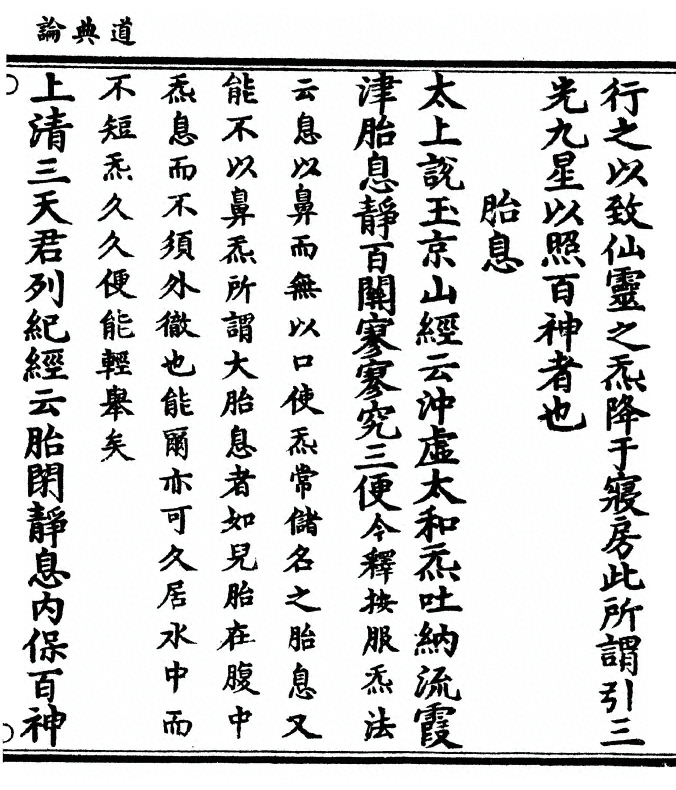 道典論
行之以致仙靈之炁降于寢房此所謂引三
光九星以照百神者也
胎息
太上說玉京山經云沖虛太和炁吐納流霞
津胎息靜百關寥寥究三便今釋按服炁法
云息以鼻而無以口使炁常儲名之胎息又
能不以鼻炁所謂大胎息者如兒胎在腹中
炁息而不須外徹也能爾亦可久居水中而
不短炁久久便能輕舉矣
上清三天君列紀經云胎閉靜息內保百神